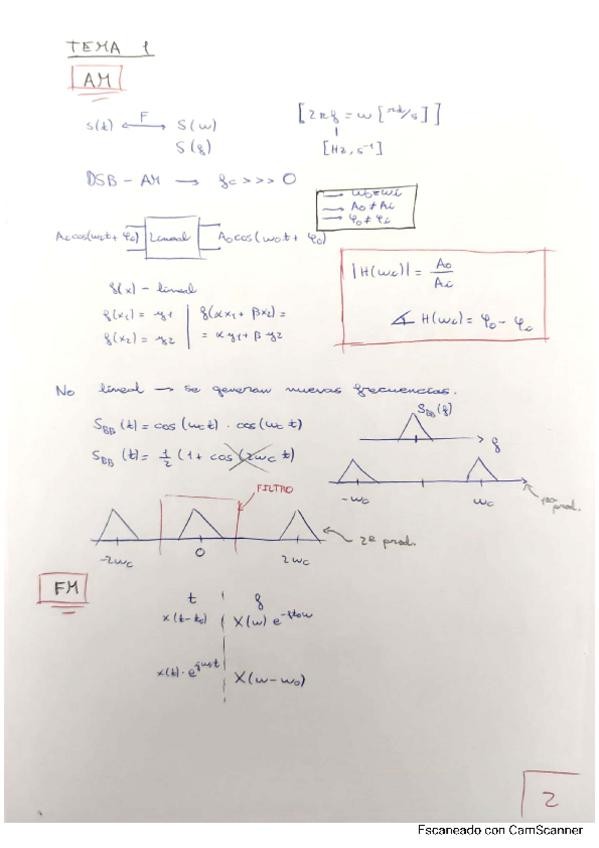 TEMA 1
AM
s(t) ←F→ S(w)
S(f)
[2πf = w [rd/s]]
[Hz, s⁻¹]
DSB - AM → fc >>> 0
→ wo = wi
→ Ao ≠ Ai
→ φo ≠ φi
Ai cos(wi t + φi) Lineal Ao cos(wo t + φo)
|H(wc)| = Ao/Ai
∡ H(wc) = φo - φi
f(x) - lineal
f(x1) = y1 | f(αx1 + βx2) =
f(x2) = y2 | = αy1 + βy2
No lineal → se generan nuevas frecuencias.
S_BB(t) = cos(wc t) · cos(wc t)
S_BB(t) = 1/2 (1 + cos(2wc t)
S_BB(f)
f
-wc wc
prod.
FILTRO
-2wc 0 2wc
2º prod.
FM
t f
x(t-t0) X(w) e^-jt0w
x(t)·e^jw0t X(w-w0)
2
Escaneado con CamScanner